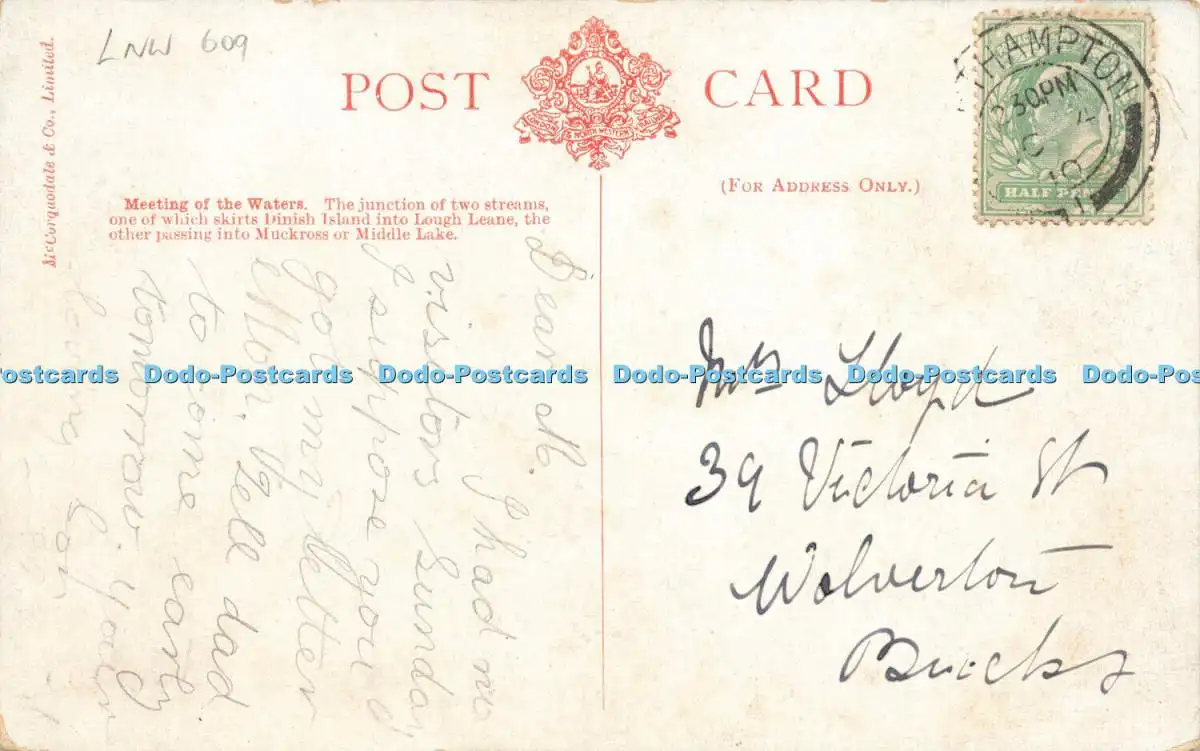 LNW 609
McCorquodale & Co., Limited.
POST CARD
LONDON & NORTH WESTERN RAILWAY
THAMPTON
2 30 PM
10
HALF PENNY
(For Address Only.)
Meeting of the Waters. The junction of two streams,
one of which skirts Dinish Island into Lough Leane, the
other passing into Muckross or Middle Lake.
Dear M. I had no
visitors Sunday
I suppose you
got my letter
Mon. Tell dad
to come early
tomorrow. your
loving
Mrs Lloyd
39 Victoria St
Wolverton
Bucks
Dodo-Postcards Dodo-Postcards Dodo-Postcards Dodo-Postcards Dodo-Postcards